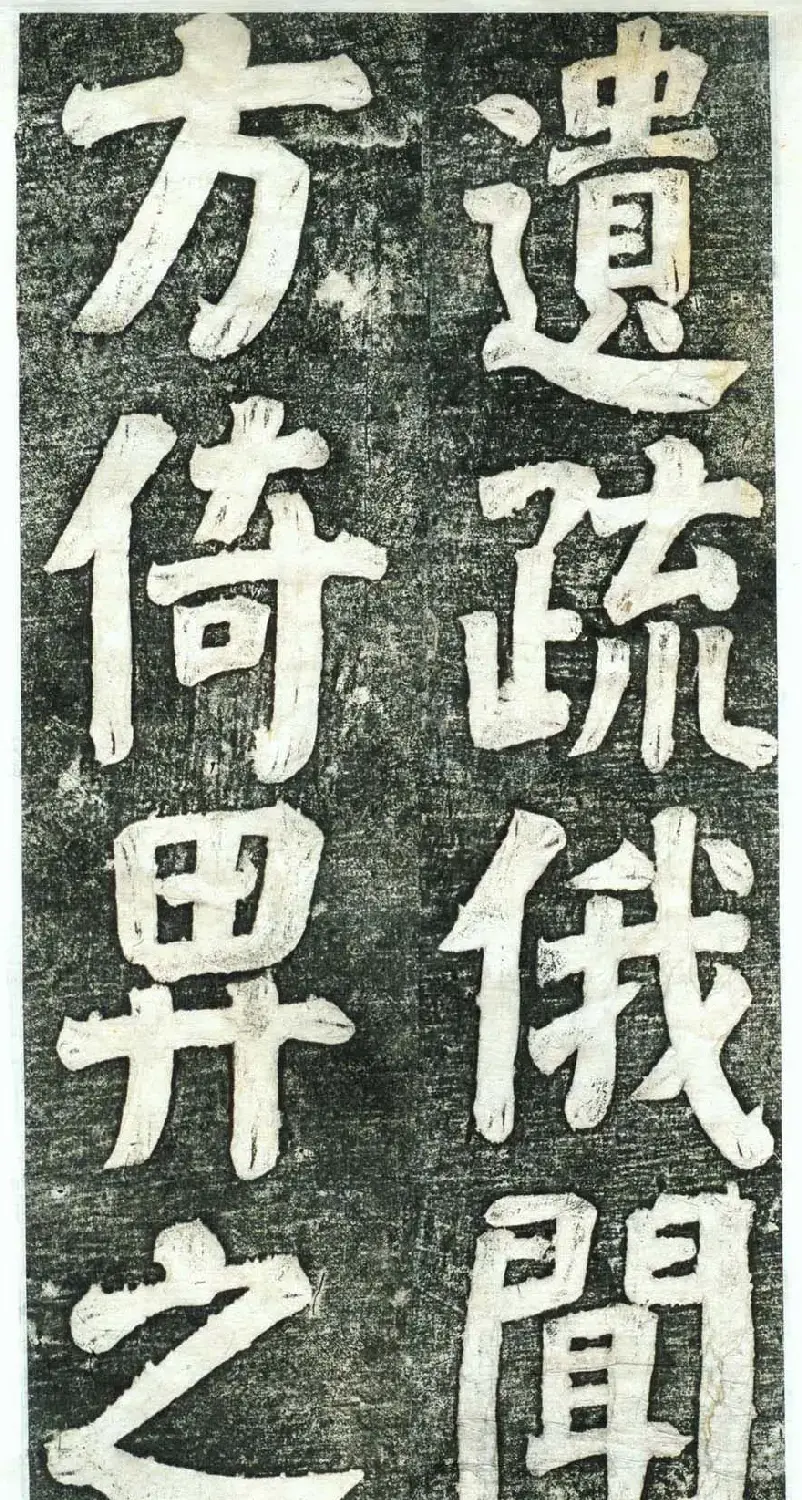 遺疏俄聞
方倚畀之